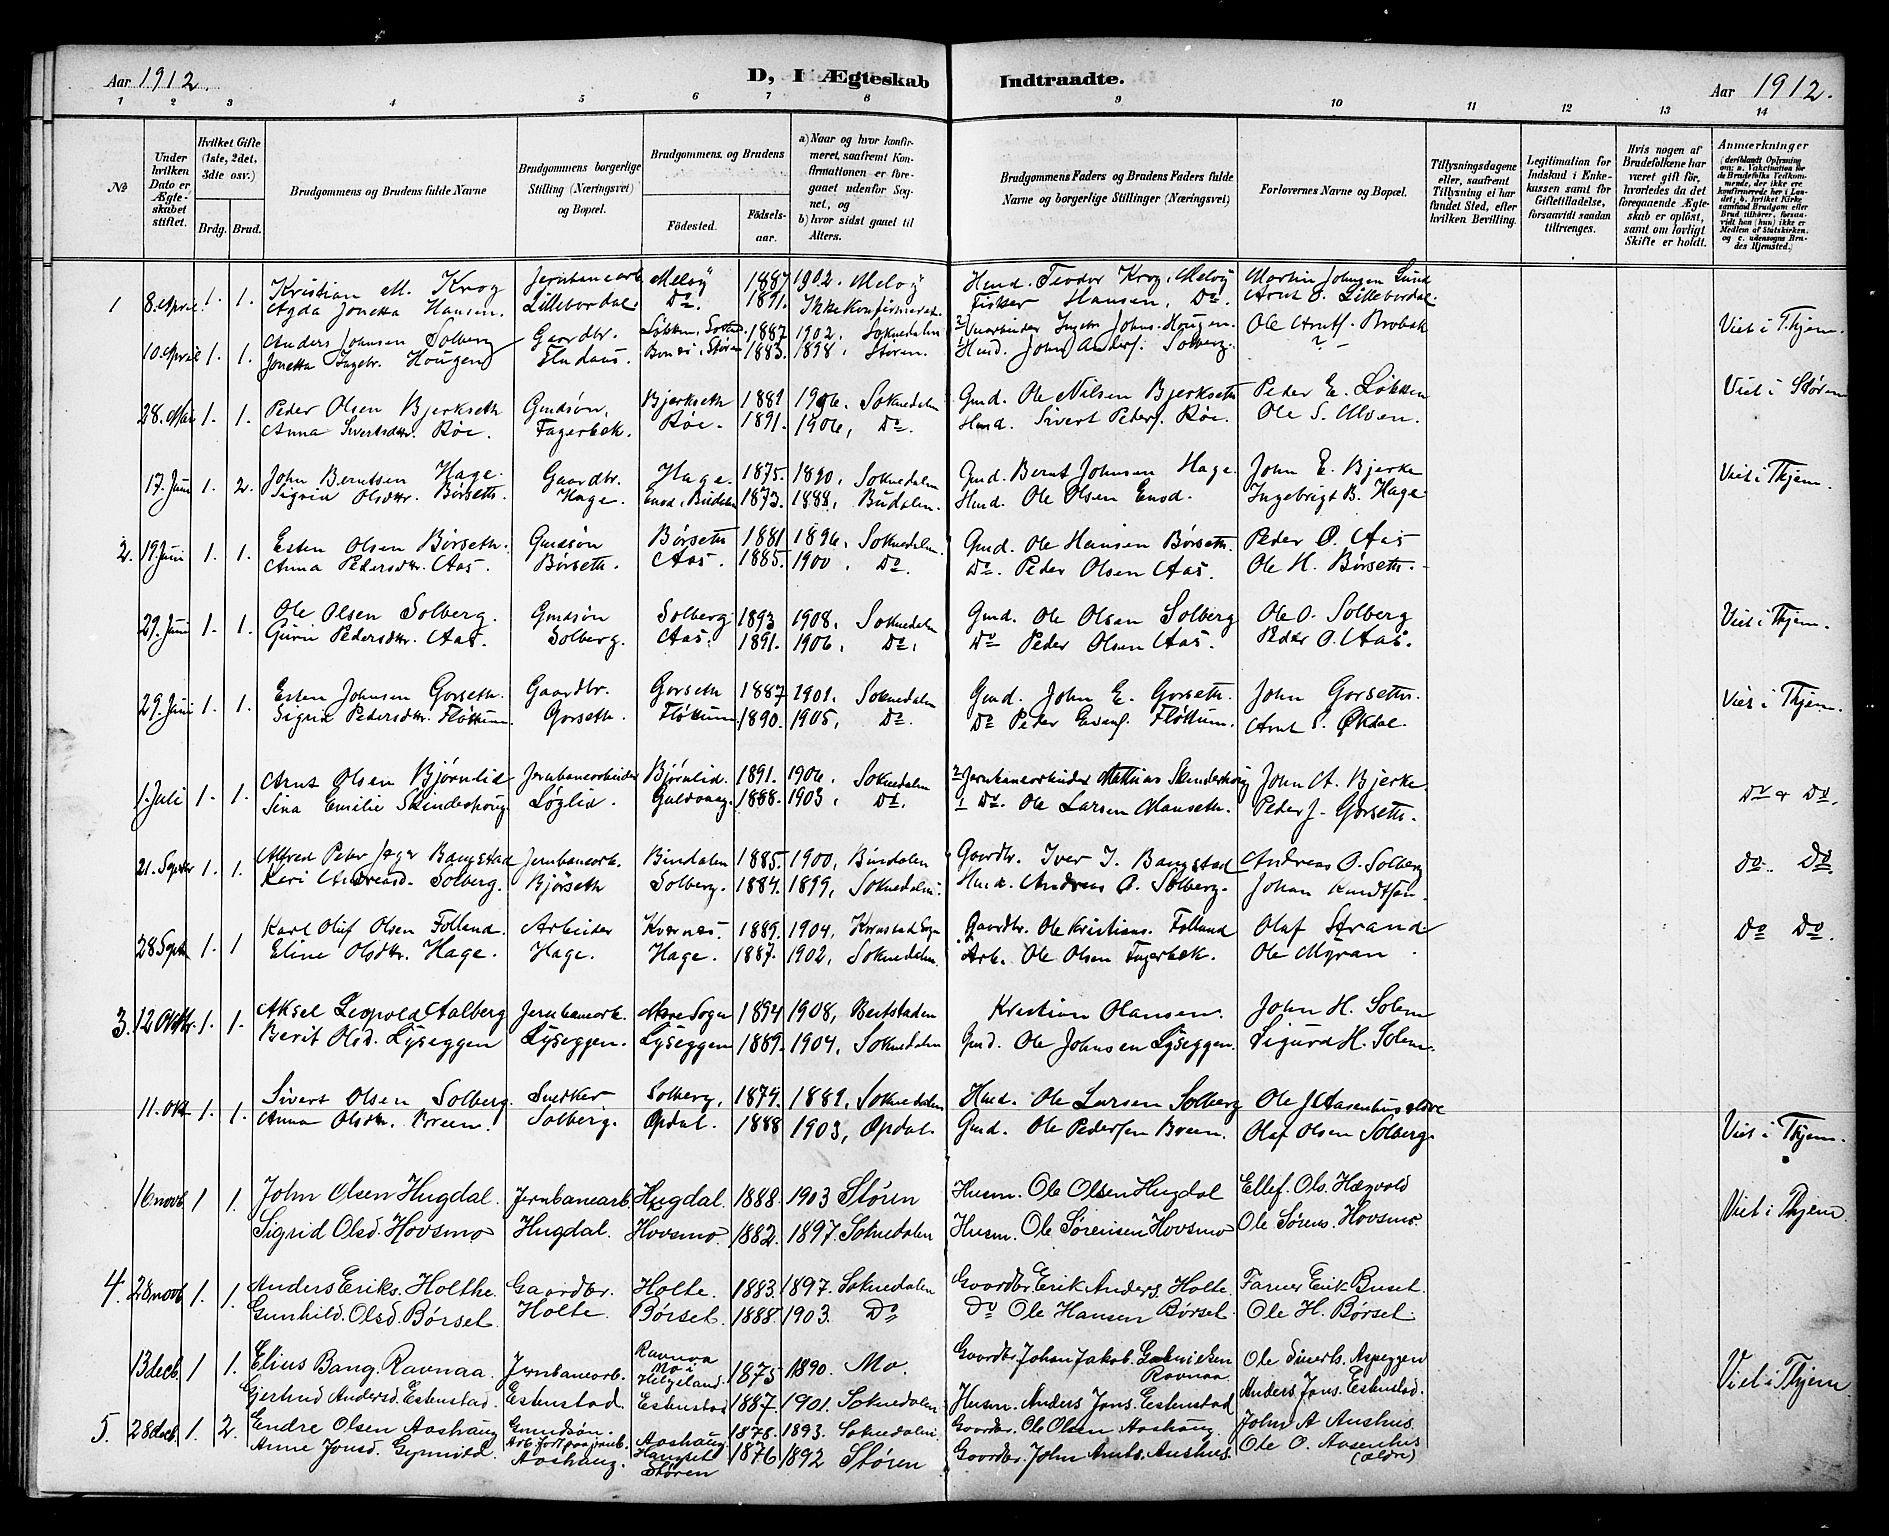 Aar 1912.
D, I Ægteskab
Indtraadte.
Aar 1912.
1 2 3 4 5 6 7 8 9 10 11 12 13 14
No
Under hvilken Dato er Ægteskabet stiftet.
Hvilket Gifte (1ste, 2det, 3dte osv.)
Brdg. Brud.
Brudgommens og Brudens fulde Navne
Brudgommens borgerlige Stilling (Næringsvei) og Bopæl.
Brudgommens og Brudens
Fødested.
Fødselsaar.
a) Naar og hvor konfirmeret, saafremt Konfirmationen er foregaaet udenfor Sognet, og
b) hvor sidst gaaet til Alters.
Brudgommens Faders og Brudens Faders fulde Navne og borgerlige Stillinger (Næringsvei)
Forlovernes Navne og Bopæl.
Tillysningsdagene eller, saafremt Tillysning ei har fundet Sted, efter hvilken Bevilling.
Legitimation for Indskud i Enkekassen samt for Giftetilladelse, forsaavidt saadan tiltrænges.
Hvis nogen af Brudefolkene har været gift før, hvorledes da det foregaaende Ægteskab er opløst, samt om lovligt Skifte er holdt.
Anmærkninger
1 8. April 1. 1. Kristian M. Krog Jernbanearb. Meløy 1887 1902. Meløy Husd. Teodor Krog, Meløy Martin Johnsen Lund
Agda Jonetta Hansen. Lillebordal. Do 1891. Ikke konfirmeret. Fisker Hansen, Do. Arnt O. Lillebordal.
10. April 1. 1. Anders Johnsen Solberg Gaardbr. Løkken, Sokned. 1887 1902. Soknedalen Ole Arntf. Brobak Viet i Thjem.
Jonetta Ingebr. Hougen 1883. 1898. Støren. Husd. John Andersf. Solberg.
28. Mai 1. 1. Peder Olsen Bjerkseth Gmdsøn. Bjerkseth 1881 1896. Soknedalen Gmd. Ole Nilsen Bjerkseth Peder E. Løkken Viet i Støren
Anna Sivertsdtr. Røe. Fagerbek. Røe. 1891. 1906, Do. Husd. Sivert Pedersf. Røe. Ole S. Moen.
17. Juni 1. 2. John Berntsen Hage. Gaardbr. Hage. 1875. 1890. Soknedalen Gmd. Bernt Johnsen Hage. John E. Bjerke Viet i Thjem.
Sigrid Olsdtr. Børseth. Hage. Enod, Budalen 1873. 1888, Budalen. Husd. Ole Olsen Enod. Ingebrigt B. Hage.
2. 19. Juni 1. 1. Esten Olsen Børseth. Gmdsøn Børseth 1881 1896, Soknedalen. Gmd. Ole Hansen Børseth. Peder O. Aas
Anna Pedersdtr. Aas. Børseth. Aas. 1885. 1900. Do. Do. Peder Olsen Aas. Ole H. Børseth.
29. Juni 1. 1. Ole Olsen Solberg. Gmdsøn Solberg 1893 1908. Soknedalen Gmd. Ole Olsen Solberg Ole O. Solberg Viet i Thjem.
Guri Pedersdtr. Aas. Solberg. Aas. 1891. 1906, Do. Do Peder Olsen Aas. Peder O. Aas.
29. Juni 1. 1. Esten Johnsen Gorseth. Gaardbr. Gorseth 1887 1901. Soknedalen Gmd. John E. Gorseth. John Gorseth. Viet i Thjem.
Sigrid Pedersdtr. Fløttum. Gorseth. Fløttum 1890. 1905. Do. Do Peder Fløttum. Arnt S. Økdal.
1. Juli 1. 1. Arnt Olsen Bjørnlid Jernbanearbeider Bjørnlid. 1891. 1906. Soknedalen 2 Jernbanearbeider Mathias Skinderhoug John A. Bjerke Do & Do.
Sina Emilie Skinderhoug Løglid. Guldvaag. 1888. 1903. Do. 1 Do. Ole Larsen Manseth. Peder J. Gorseth.
21. Septbr 1. 1. Alfred Peter Jager Bangstad Jernbanearb. Bindalen 1885. 1900, Bindalen Gaardbr. Iver I. Bangstad Andreas O. Solberg Do. Do.
Keri Andreasd. Solberg. Bjørseth Solberg. 1884. 1899, Soknedalen. Husd. Andreas O. Solberg. Johan Knudtsen
28 Septbr 1. 1 Karl Oluf Olsen Folland. Arbeider Kvernes. 1889. 1904, Gaardbr. Ole Kristians. Folland Olaf Strand Do Do.
Eline Olsdtr. Hage. Hage. Hage. 1887. 1902, Soknedalen. Arb. Ole Olsen Fagerbek. Ole Myran.
3. 12 Oktbr. 1. 1. Aksel Leopold Aalberg Jernbanearb. 1894 1908, Beitstaden Kristian Olansen. John H. Solem
Berit Olsd. Lyseggen Lyseggen. Lyseggen 1889. 1904. Soknedalen Gmd. Ole Johnsen Lyseggen. Sigurd H. Solem.
11. Okt 1. 1. Sivert Olsen Solberg. Snedker Solberg. 1874. 1889, Soknedalen Husd. Ole Larsen Solberg Ole J. Aasenhus ældre
Anna Olsdtr. Breen. Solberg. Opdal. 1888 1903, Opdal. Gmd. Ole Pedersen Breen. Olaf Olsen Solberg. Viet i Thjem.
16 novb 1 1. John Olsen Hugdal. Jernbanearb. Hugdal. 1888 1903 Støren Husm. Ole Olsen Hugdal Ellef. Ols. Hægvold
Sigrid Olsd. Hovsmo Hugdal. Hovsmo. 1882. 1897. Soknedalen Husm. Ole Sørensen Hovsmo Ole Sørens. Hovsmo. Viet i Thjem.
4. 28 novb 1. 1. Anders Eriks. Holthe. Gaardbr. Holte. 1883. 1897. Soknedalen Gaardbr. Erik Anders. Holte. Farver Erik Buset.
Gunhild Olsd. Børset. Holte. Børset. 1888. 1903. Do Do Ole Hansen Børset. Ole H. Børset
13 decb. 1 1. Elius Bang Ravnaa. Jernbanearb. Ravnaa Mo i Helgeland. 1875 1890. Mo. Gaardbr. Johan Jakob Ravnaa. Ole Siverts. Aspeggen Viet i Thjem.
Gjertrud Andersd. Estenstad. Estenstad. Estenstad 1887 1901. Soknedalen Husm. Anders Jons. Estenstad Anders Jons. Estenstad.
5. 28 decb. 1. 2. Endre Olsen Aashaug Gmndsøn. Aashaug 1878. 1893. Soknedalen. Gaardbr. Ole Olsen Aashaug. John A Aushus
Anne Jonsd. Aashaug. Støren 1876 1892 Støren Gaardbr. John Arnts. Aushus. Ole O. Aasenhus (ældre)